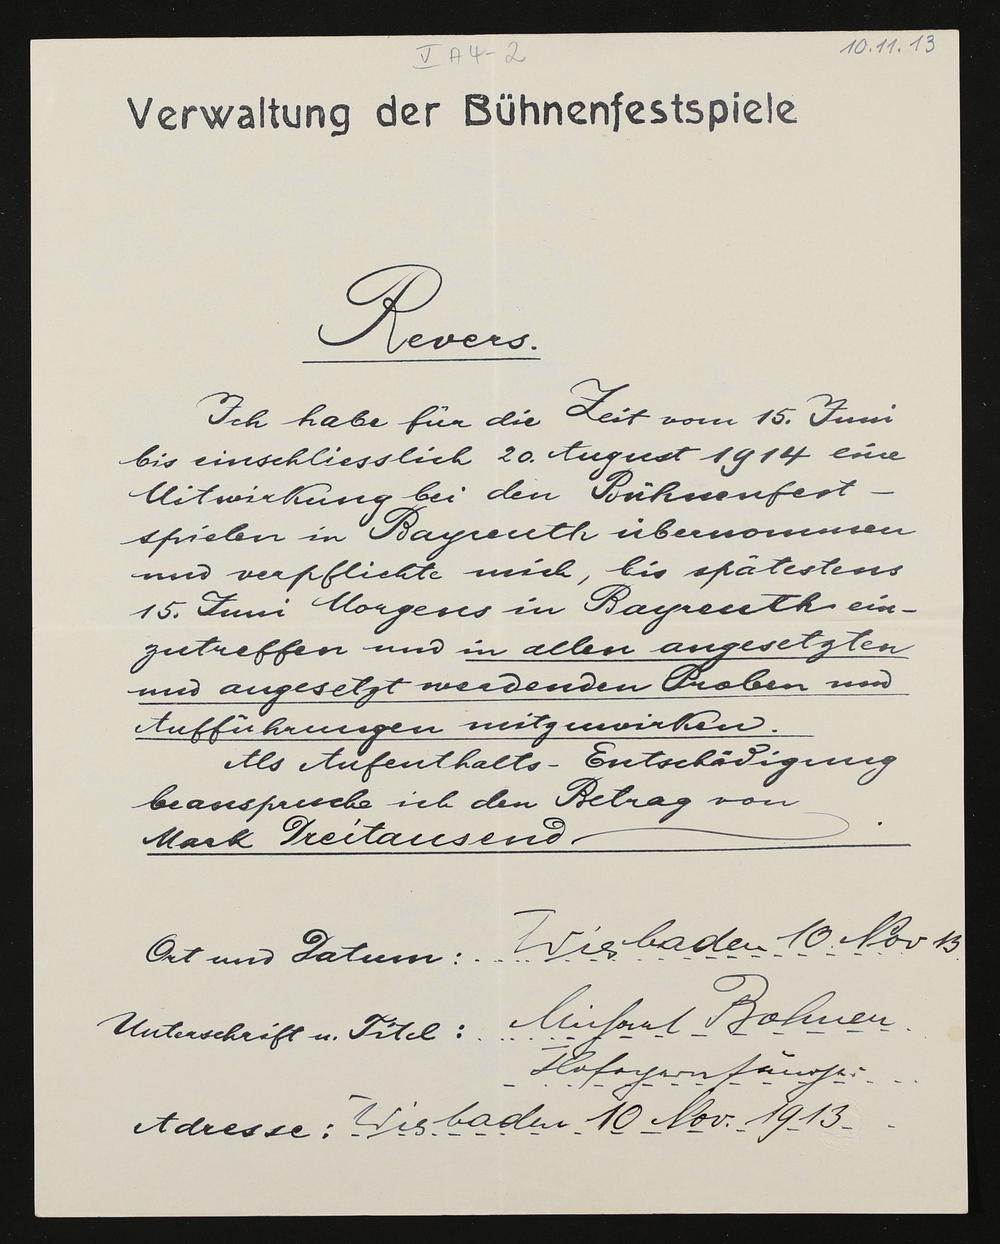 V A 4-2
10.11.13
Verwaltung der Bühnenfestspiele
Revers.
Ich habe für die Zeit vom 15. Juni
bis einschliesslich 20. August 1914 eine
Mitwirkung bei den Bühnenfest-
spielen in Bayreuth übernommen
und verpflichte mich, bis spätestens
15. Juni Morgens in Bayreuth ein-
zutreffen und in allen angesetzten
und angesetzt werdenden Proben und
Aufführungen mitzuwirken.
Als Aufenthalts-Entschädigung
beanspruche ich den Betrag von
Mark Dreitausend.
Ort und Datum: Wiesbaden 10. Nov 13
Unterschrift u. Titel: Michael Bohnen
Hofopernsänger
Adresse: Wiesbaden 10 Nov. 1913